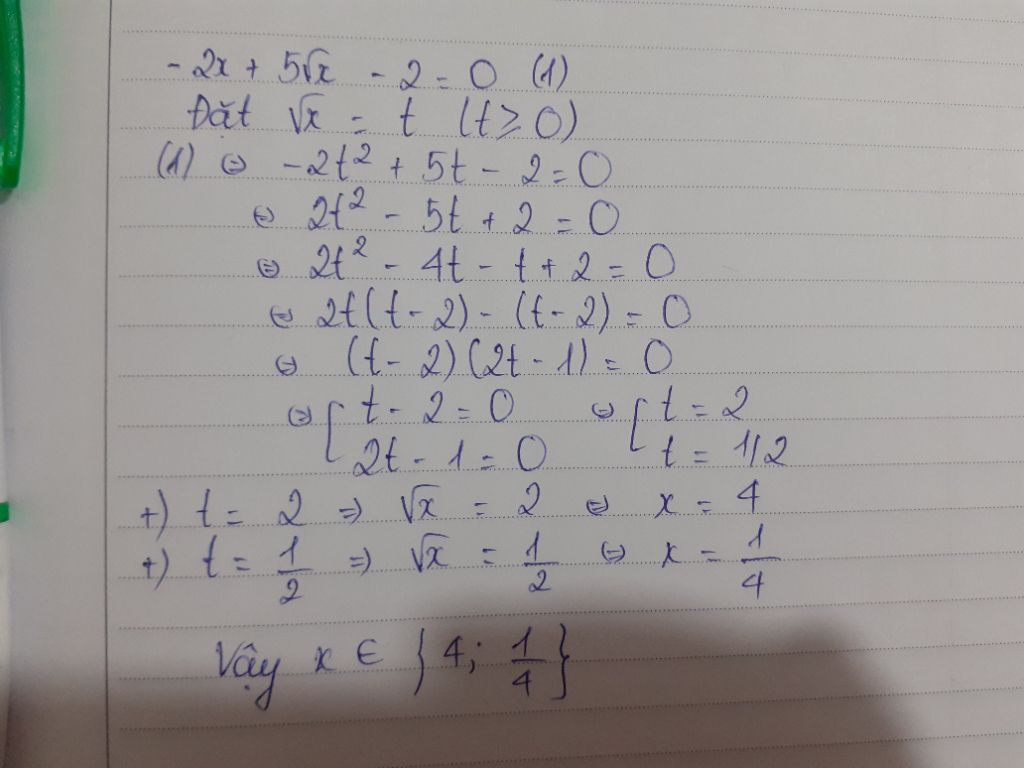 - 2x + 5√x - 2 = 0 (1)
Đặt √x = t (t ≥ 0)
(1) ⇔ -2t² + 5t - 2 = 0
⇔ 2t² - 5t + 2 = 0
⇔ 2t² - 4t - t + 2 = 0
⇔ 2t(t - 2) - (t - 2) = 0
⇔ (t - 2)(2t - 1) = 0
⇔ [ t - 2 = 0 ⇔ [ t = 2
2t - 1 = 0 t = 1/2
+) t = 2 ⇒ √x = 2 ⇔ x = 4
+) t = 1/2 ⇒ √x = 1/2 ⇔ x = 1/4
Vậy x ∈ {4; 1/4}